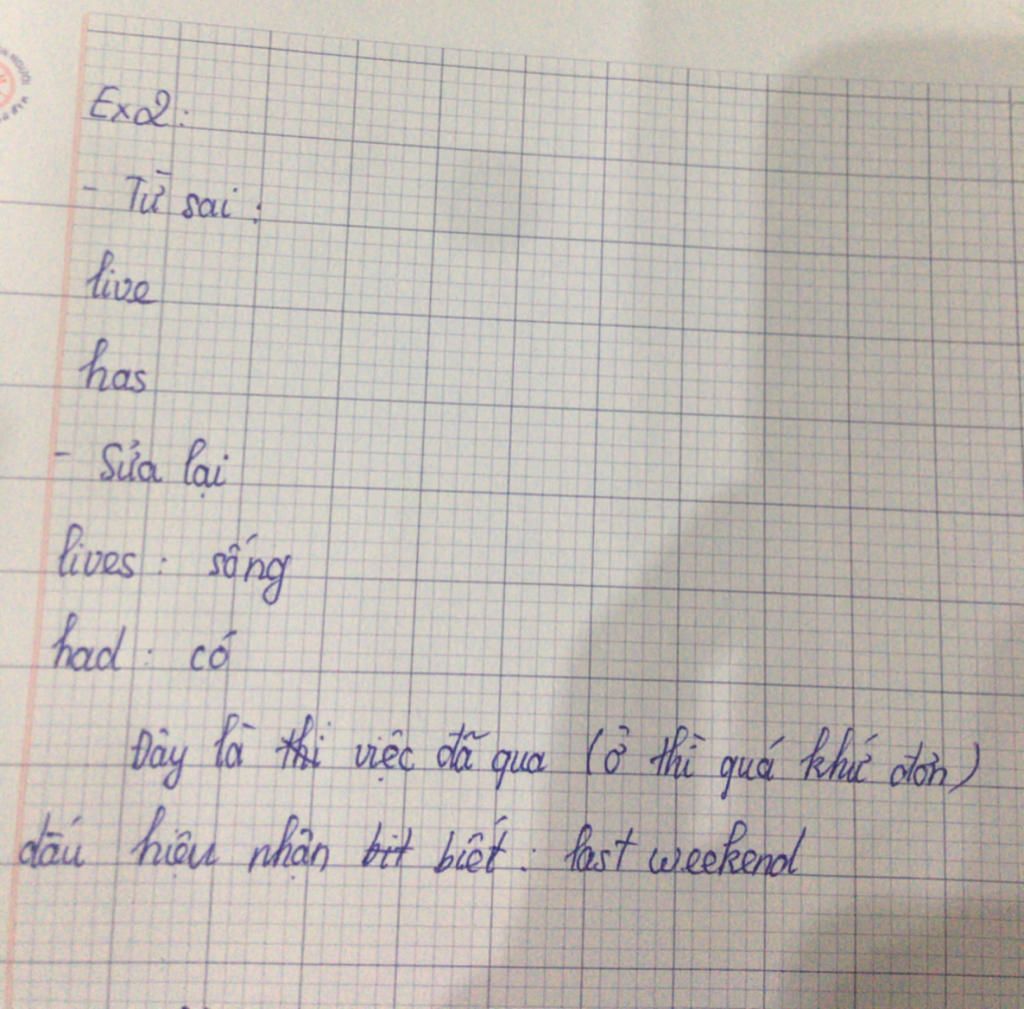 Ex2:
- Từ sai:
live
has
- Sửa lại
lives: sống
had: có
Đây là thi việc đã qua (ở thì quá khứ đơn)
dấu hiệu nhận bit biết: last weekend